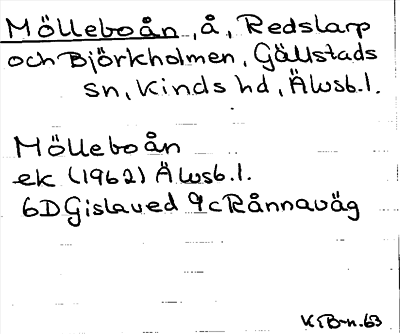 Mölleboån, å, Redslarp
och Björkholmen, Gällstads
sn, Kinds hd, Älvsb.l.
Mölleboån
ek (1962) Älvsb.l.
6D Gislaved 9c Rånnaväg